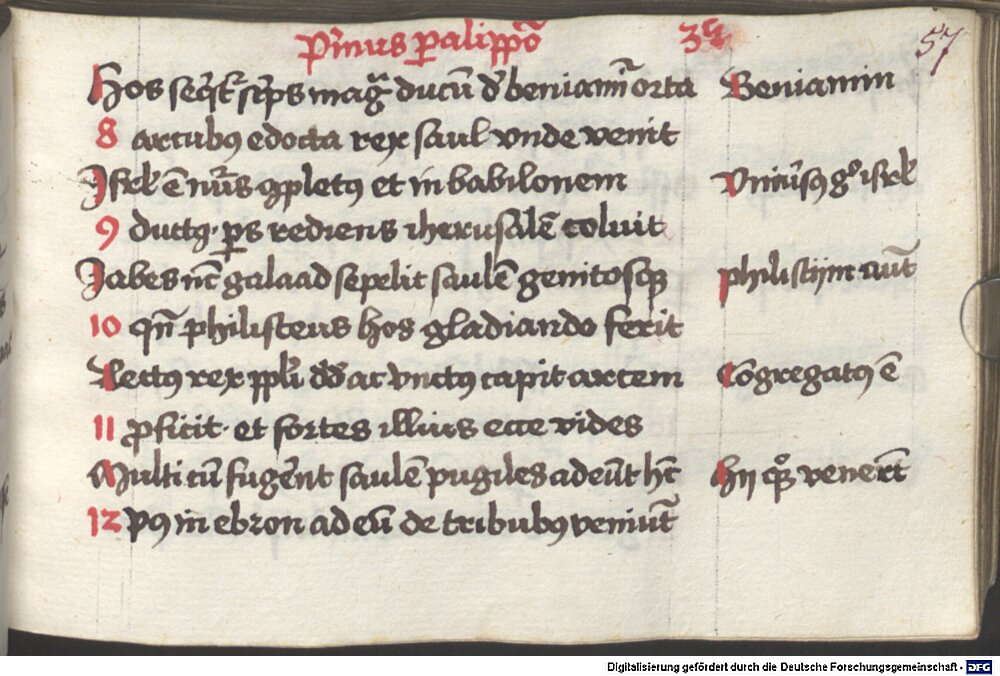 Prim9 paralippo 35 57
Hos seqr scps magr ducu de beniami orta Beniamin
8 arcubus edocta rex saul unde venit
Israel e nu9s 9pletus et in babilonem Universus g° israel
9 ductus. ps rediens iherusale coluit
Iabes nc galaad sepelit saule genitosque philistijm aut
10 qn philisteus hos gladiando ferit
Lectus rex ppli dd ac unctus capit arcem Congregatus e
11 pficit. et fortes illius ecce vides
Multi cu fugeret saule pugiles adeut hc Hij quoque venert
12 Pus in ebron ad eu de tribubus veniut
Digitalisierung gefördert durch die Deutsche Forschungsgemeinschaft - DFG